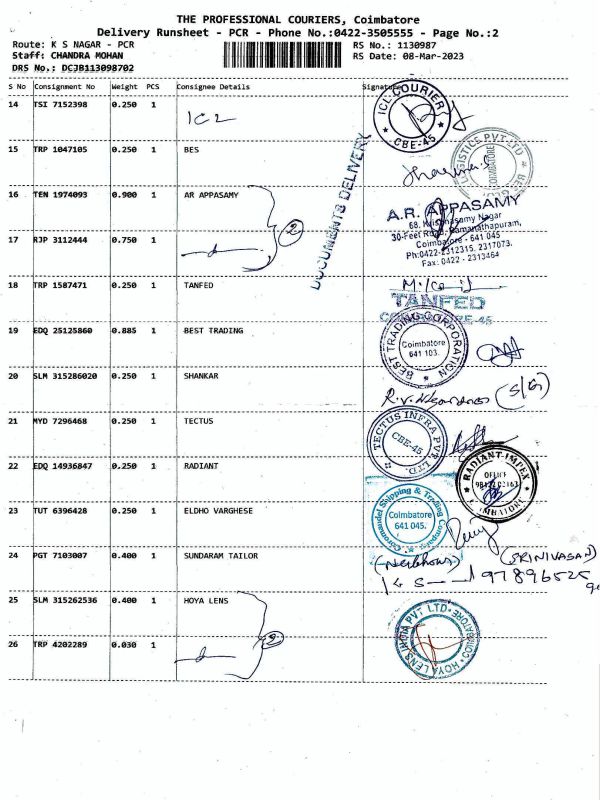 THE PROFESSIONAL COURIERS, Coimbatore
Delivery Runsheet - PCR - Phone No.:0422-3505555 - Page No.:2
Route: K S NAGAR - PCR
RS No.: 1130987
Staff: CHANDRA MOHAN
RS Date: 08-Mar-2023
DRS No.: DCJB113098702
S No Consignment No Weight PCS Consignee Details Signature
14 TSI 7152398 0.250 1 ICL
ICL COURIER
CBE-45
15 TRP 1047105 0.250 1 BES
LOGISTICS PVT LTD
COIMBATORE
DOCUMENTS DELIVERY
16 TEN 1974093 0.900 1 AR APPASAMY
A.R. APPASAMY
68, Krishnasamy Nagar
30-Feet Road, Ramanathapuram,
Coimbatore - 641 045
Ph:0422-2312315. 2317073.
Fax: 0422 - 2313464
17 RJP 3112444 0.750 1
2
18 TRP 1587471 0.250 1 TANFED
TANFED
COIMBATORE-45
19 EDQ 25125860 0.885 1 BEST TRADING
BEST TRADING CORPORATION
Coimbatore
641 103.
20 SLM 315286020 0.250 1 SHANKAR
21 MYD 7296468 0.250 1 TECTUS
TECTUS INFRA PVT. LTD.
CBE-45
22 EDQ 14936847 0.250 1 RADIANT
RADIANT IMPEX
OFFICE
COIMBATORE
23 TUT 6396428 0.250 1 ELDHO VARGHESE
Coromandel Shipping & Trading Company
Coimbatore
641 045.
24 PGT 7103007 0.400 1 SUNDARAM TAILOR
(SRINIVASAN)
97896525
25 SLM 315262536 0.400 1 HOYA LENS
HOYA LENS INDIA PVT LTD
COIMBATORE
26 TRP 4202289 0.030 1
2